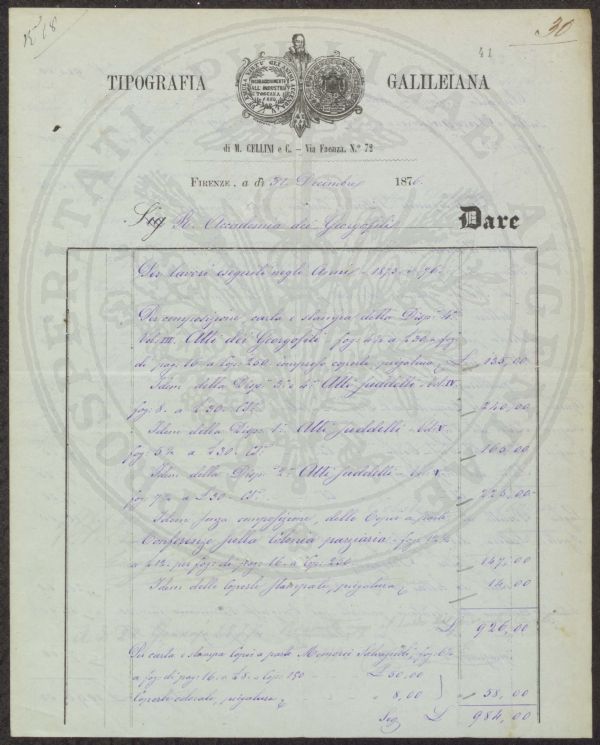 N° 68
30
41
TIPOGRAFIA GALILEIANA
di M. CELLINI e C. — Via Faenza, N.° 72
FIRENZE, a dì 31 Decembre 1876.
Sig R. Accademia dei Georgofili Dare
Per lavori eseguiti negli Anni 1875 e 76.
Per composizione, carta e stampa della Disp.ª 4ª
Vol. III. Atti dei Georgofili fog. 4½ a £ 30 a fog.
di pag. 16 a Cop. 250 compreso coperte, piegatura £ 135,00
Idem della Disp.ª 3ª e 4ª Atti suddetti Vol. IV.
fog. 8 a £ 30 135,00
Idem della Disp. 1ª Atti suddetti Vol. V.
fog. 5½ a £ 30 165,00
Idem della Disp. 2ª Atti suddetti Vol. V
fog. 7½ a £ 30 225,00
Idem senza composizione, delle Copie a parte
Conferenze sulla Colonia parziaria fog. 12¼
a £ 12 per fog. di pag. 16 a Cop. 250 147,00
Idem delle Coperte stampate, piegatura 14,00
£ 926,00
Per carta e stampa Copie a parte Memorie
a fog. di pag. 16 a £ 8 Cop. 150 £ 50,00
Coperte colorate, piegatura 8,00 58,00
Seg. £ 984,00